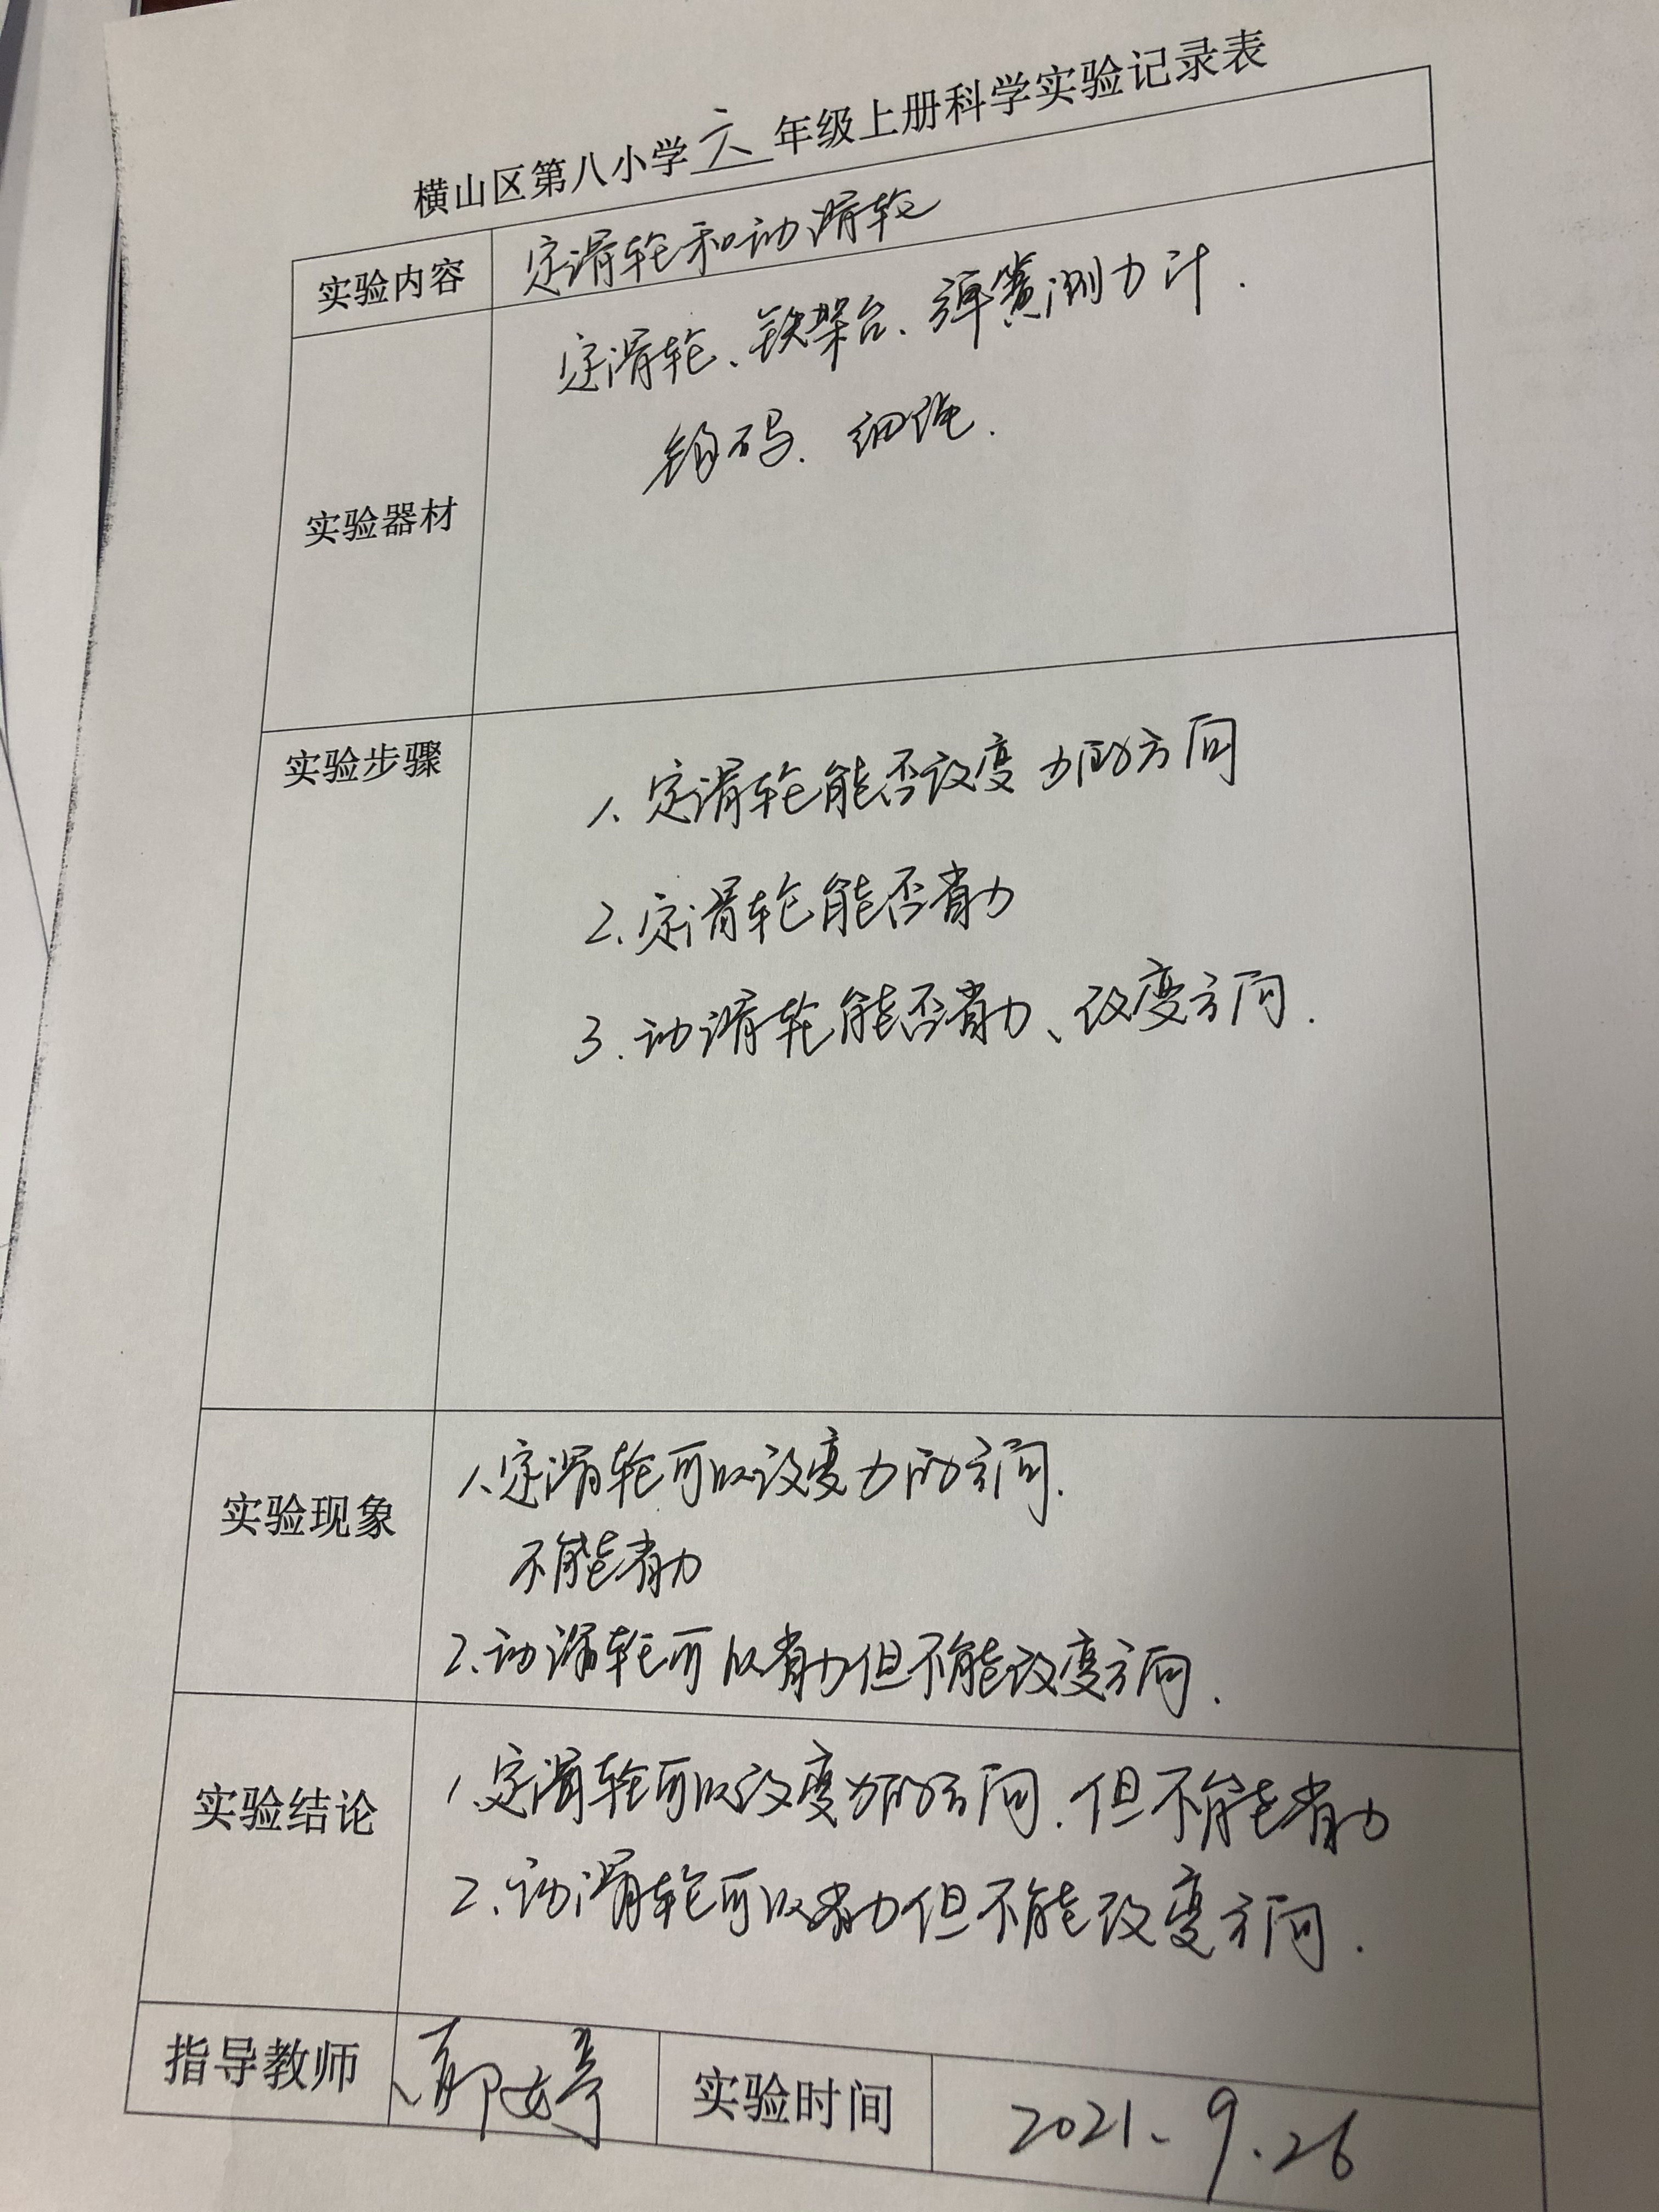 横山区第八小学六年级上册科学实验记录表
实验内容
定滑轮和动滑轮
实验器材
定滑轮、铁架台、弹簧测力计.
钩码. 细绳.
实验步骤
1、定滑轮能否改变力的方向
2、定滑轮能否省力
3.动滑轮能否省力、改变方向.
实验现象
1、定滑轮可以改变力的方向.
不能省力
2、动滑轮可以省力但不能改变方向.
实验结论
1、定滑轮可以改变力的方向.但不能省力
2、动滑轮可以省力但不能改变方向.
指导教师
婷
实验时间
2021、9.26